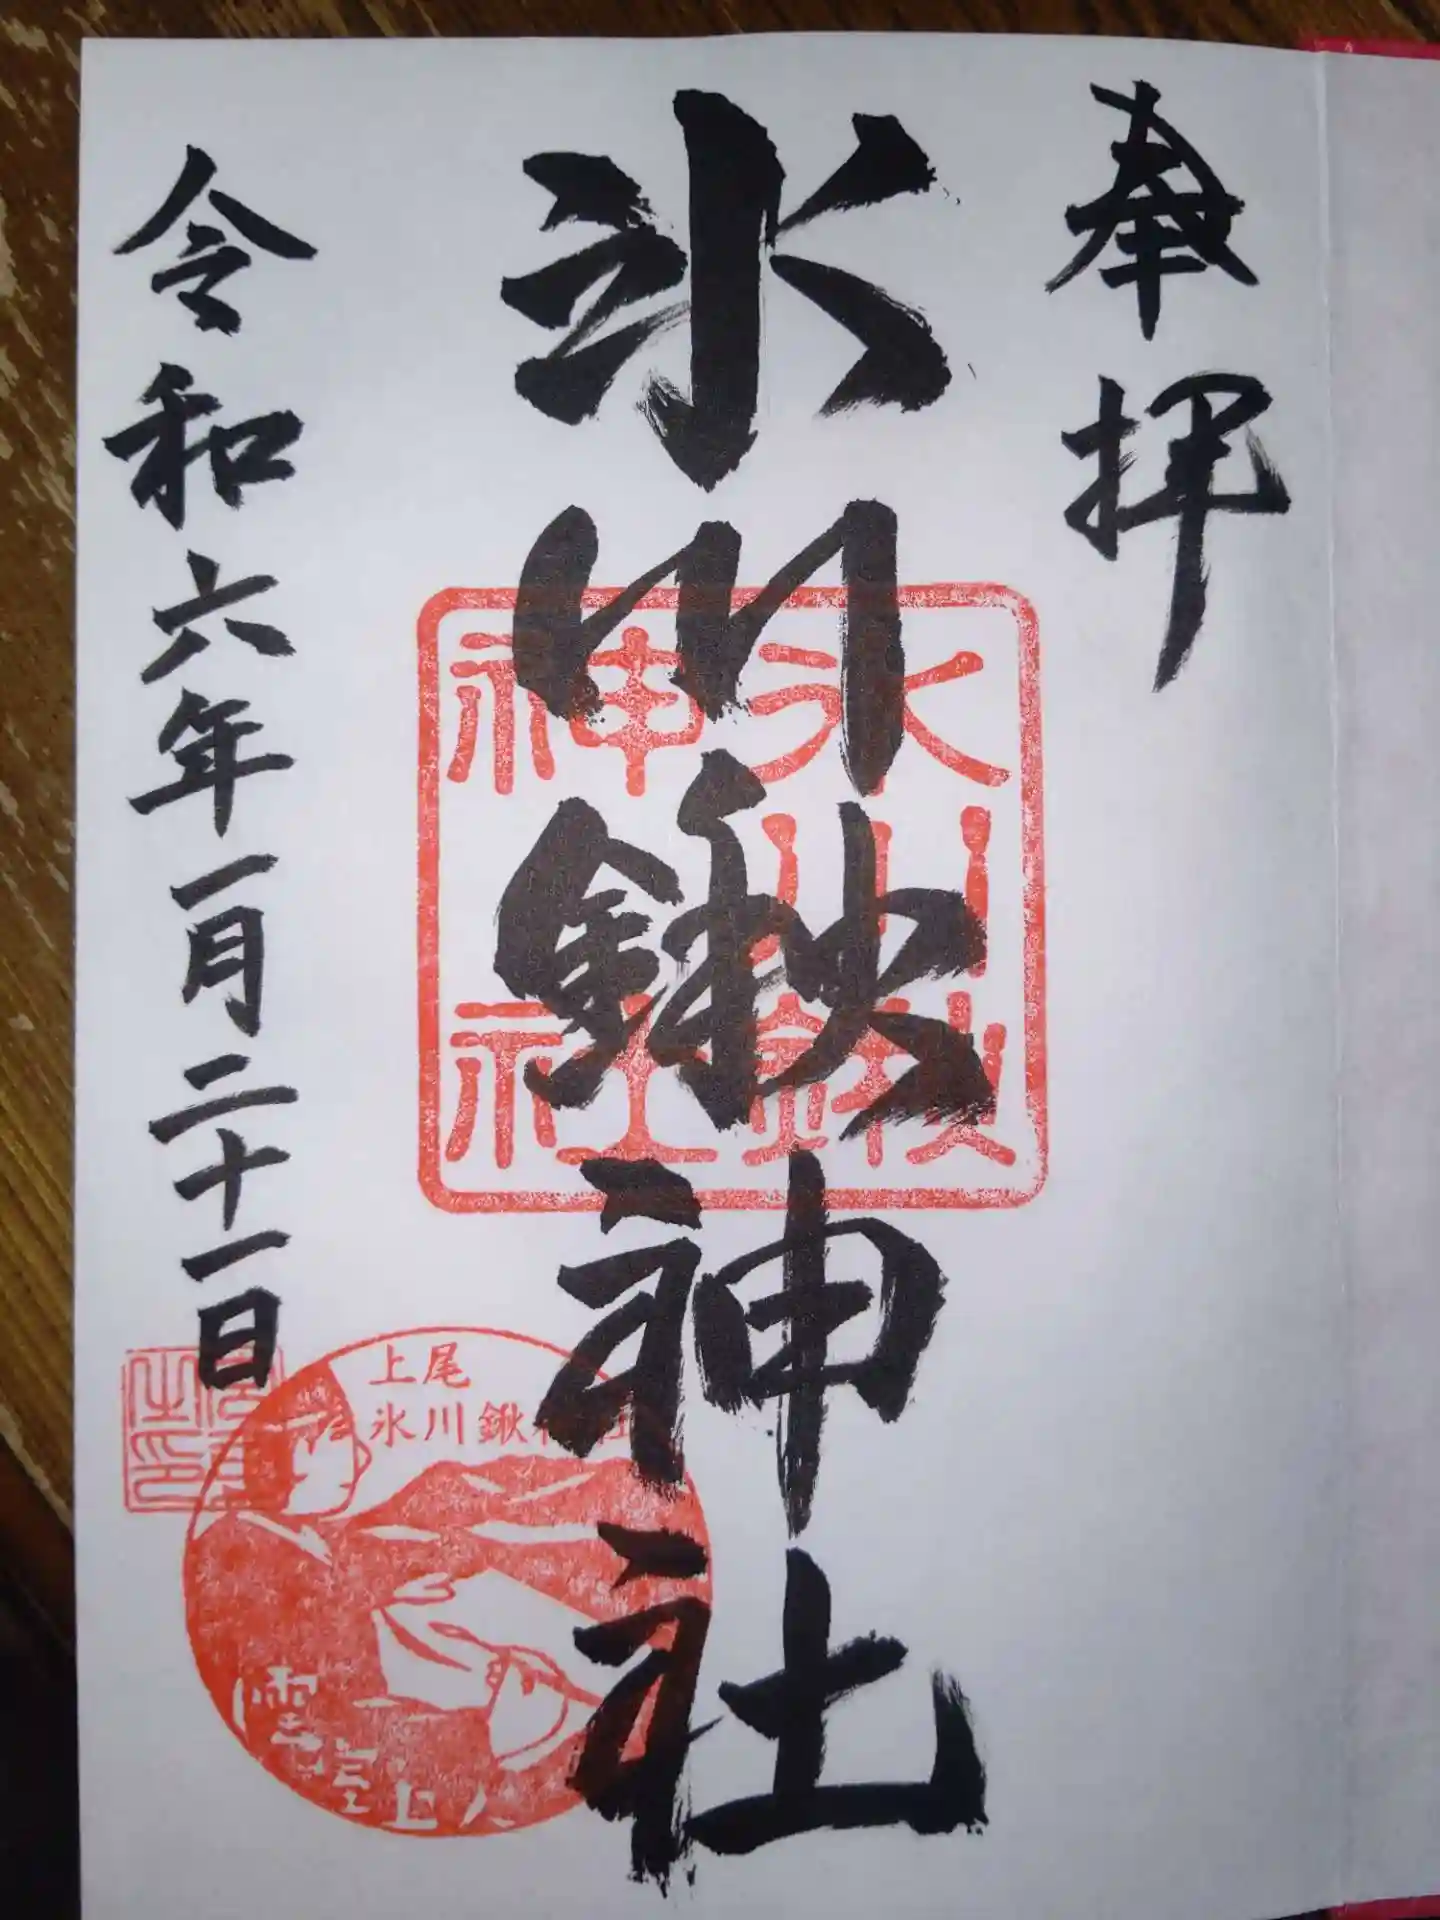 奉拝
氷川鍬神社
氷川鍬神社
令和六年一月二十一日
上尾
氷川鍬神社
雲室上人